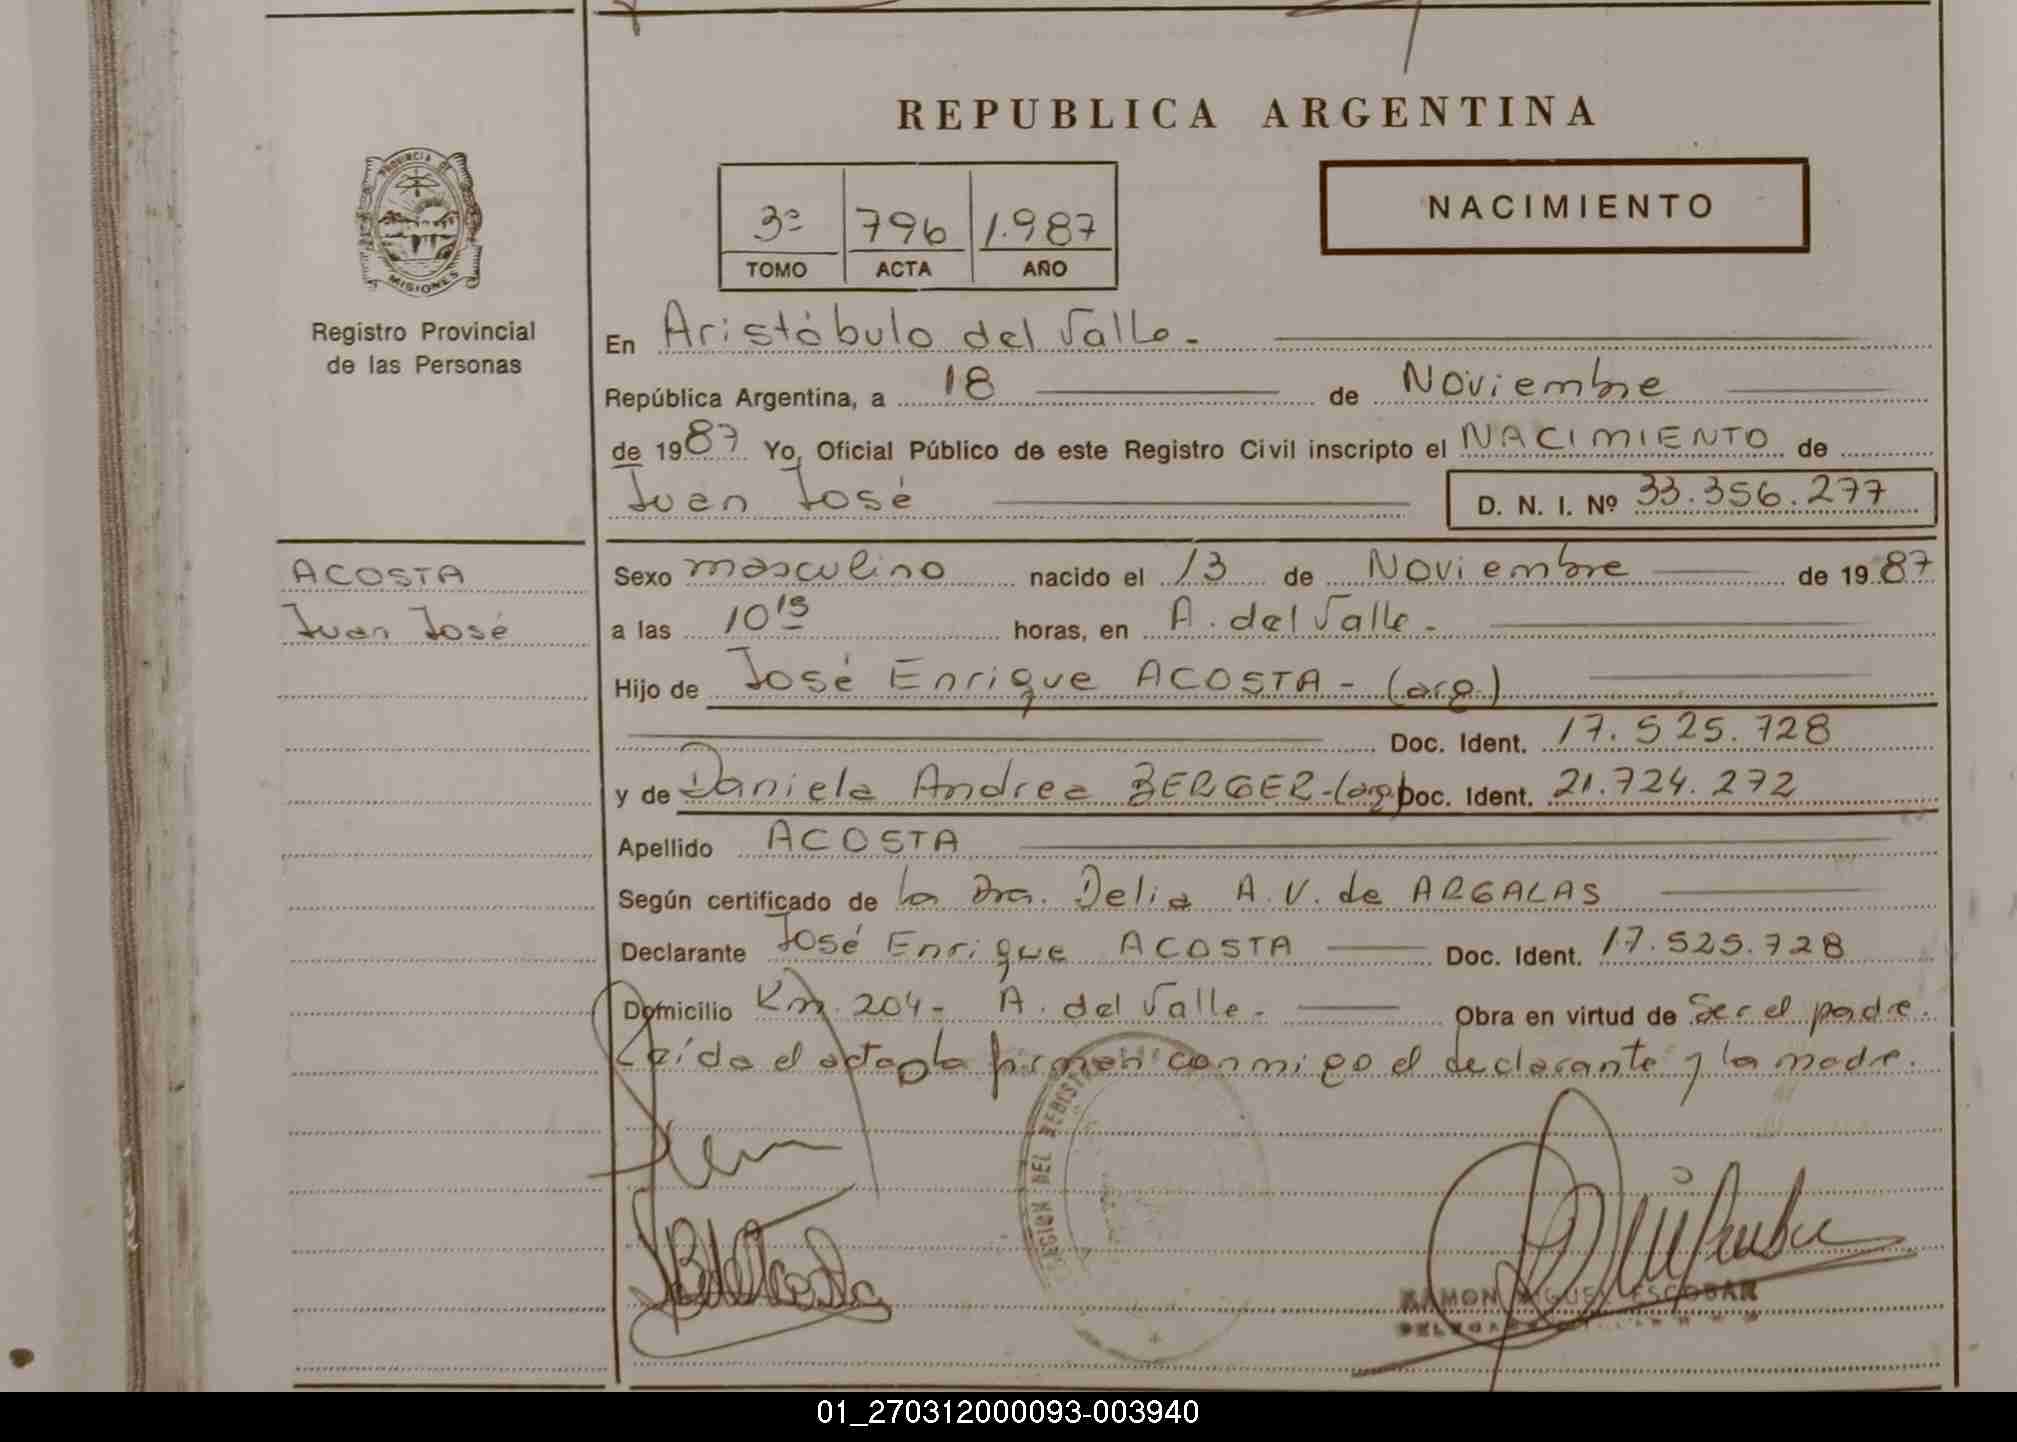 REPUBLICA ARGENTINA
PROVINCIA DE MISIONES
Registro Provincial
de las Personas
3º 796 1.987
TOMO ACTA AÑO
NACIMIENTO
En Aristóbulo del Valle.-
República Argentina, a 18 de Noviembre
de 1987 Yo, Oficial Público de este Registro Civil inscripto el NACIMIENTO de
Juan José D. N. I. Nº 33.356.277
ACOSTA
Juan José
Sexo masculino nacido el 13 de Noviembre de 1987
a las 10 15 horas, en A. del Valle.-
Hijo de José Enrique ACOSTA - (arg.)
Doc. Ident. 17.525.728
y de Daniela Andrea BERGER-(arg) Doc. Ident. 21.724.272
Apellido ACOSTA
Según certificado de la Dra. Delia A.V. de ARGALAS
Declarante José Enrique ACOSTA Doc. Ident. 17.525.728
Domicilio Km. 204- A. del Valle.- Obra en virtud de ser el padre.
Leída el acta la firman conmigo el declarante y la madre.
DEL REGIST
RAMON MIGUEL ESCOBAR
01_270312000093-003940